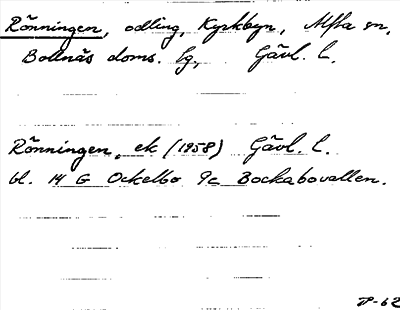 Rönningen, odling, Kyrkbyn, Alfta sn,
Bollnäs doms. lg, Gävl. l.
Rönningen, ek (1958) Gävl. l.
bl. 14 G Ockelbo 9c Bockabovallen.
P-62